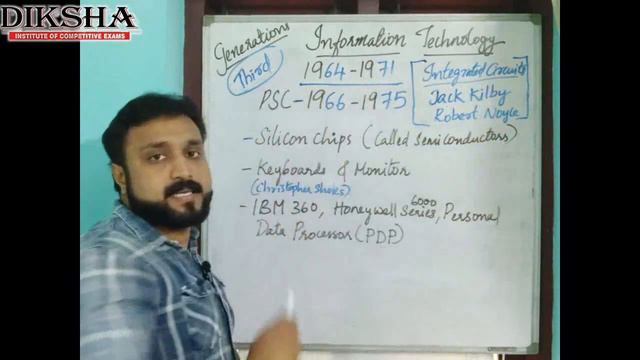 DIKSHA
INSTITUTE OF COMPETITIVE EXAMS
Generations
Information Technology
Third
1964-1971
Integrated Circuits
PSC-1966-1975
Jack Kilby
Robert Noyce
- Silicon chips (Called Semiconductors)
- Keyboards & Monitor
(Christopher Sholes)
- IBM 360, Honeywell 6000 Series, Personal
Data Processor (PDP)